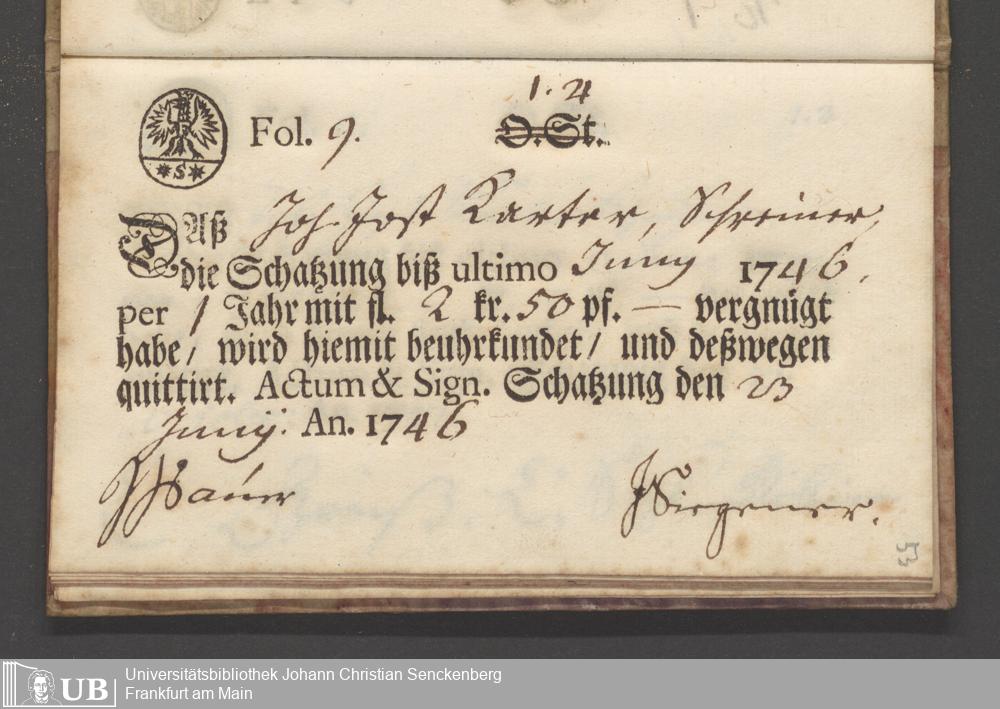 1. 4
Fol. 9. O. St.
* S *
Daß Joh. Jost Karter, Schreiner,
die Schatzung biß ultimo Juny 1746.
per 1 Jahr mit fl. 2 kr. 50 pf. — vergnügt
habe/ wird hiemit beuhrkundet/ und deßwegen
quittirt. Actum & Sign. Schatzung den 23
Junÿ. An. 1746
Bauer JSiegener.
53
Universitätsbibliothek Johann Christian Senckenberg
UB Frankfurt am Main